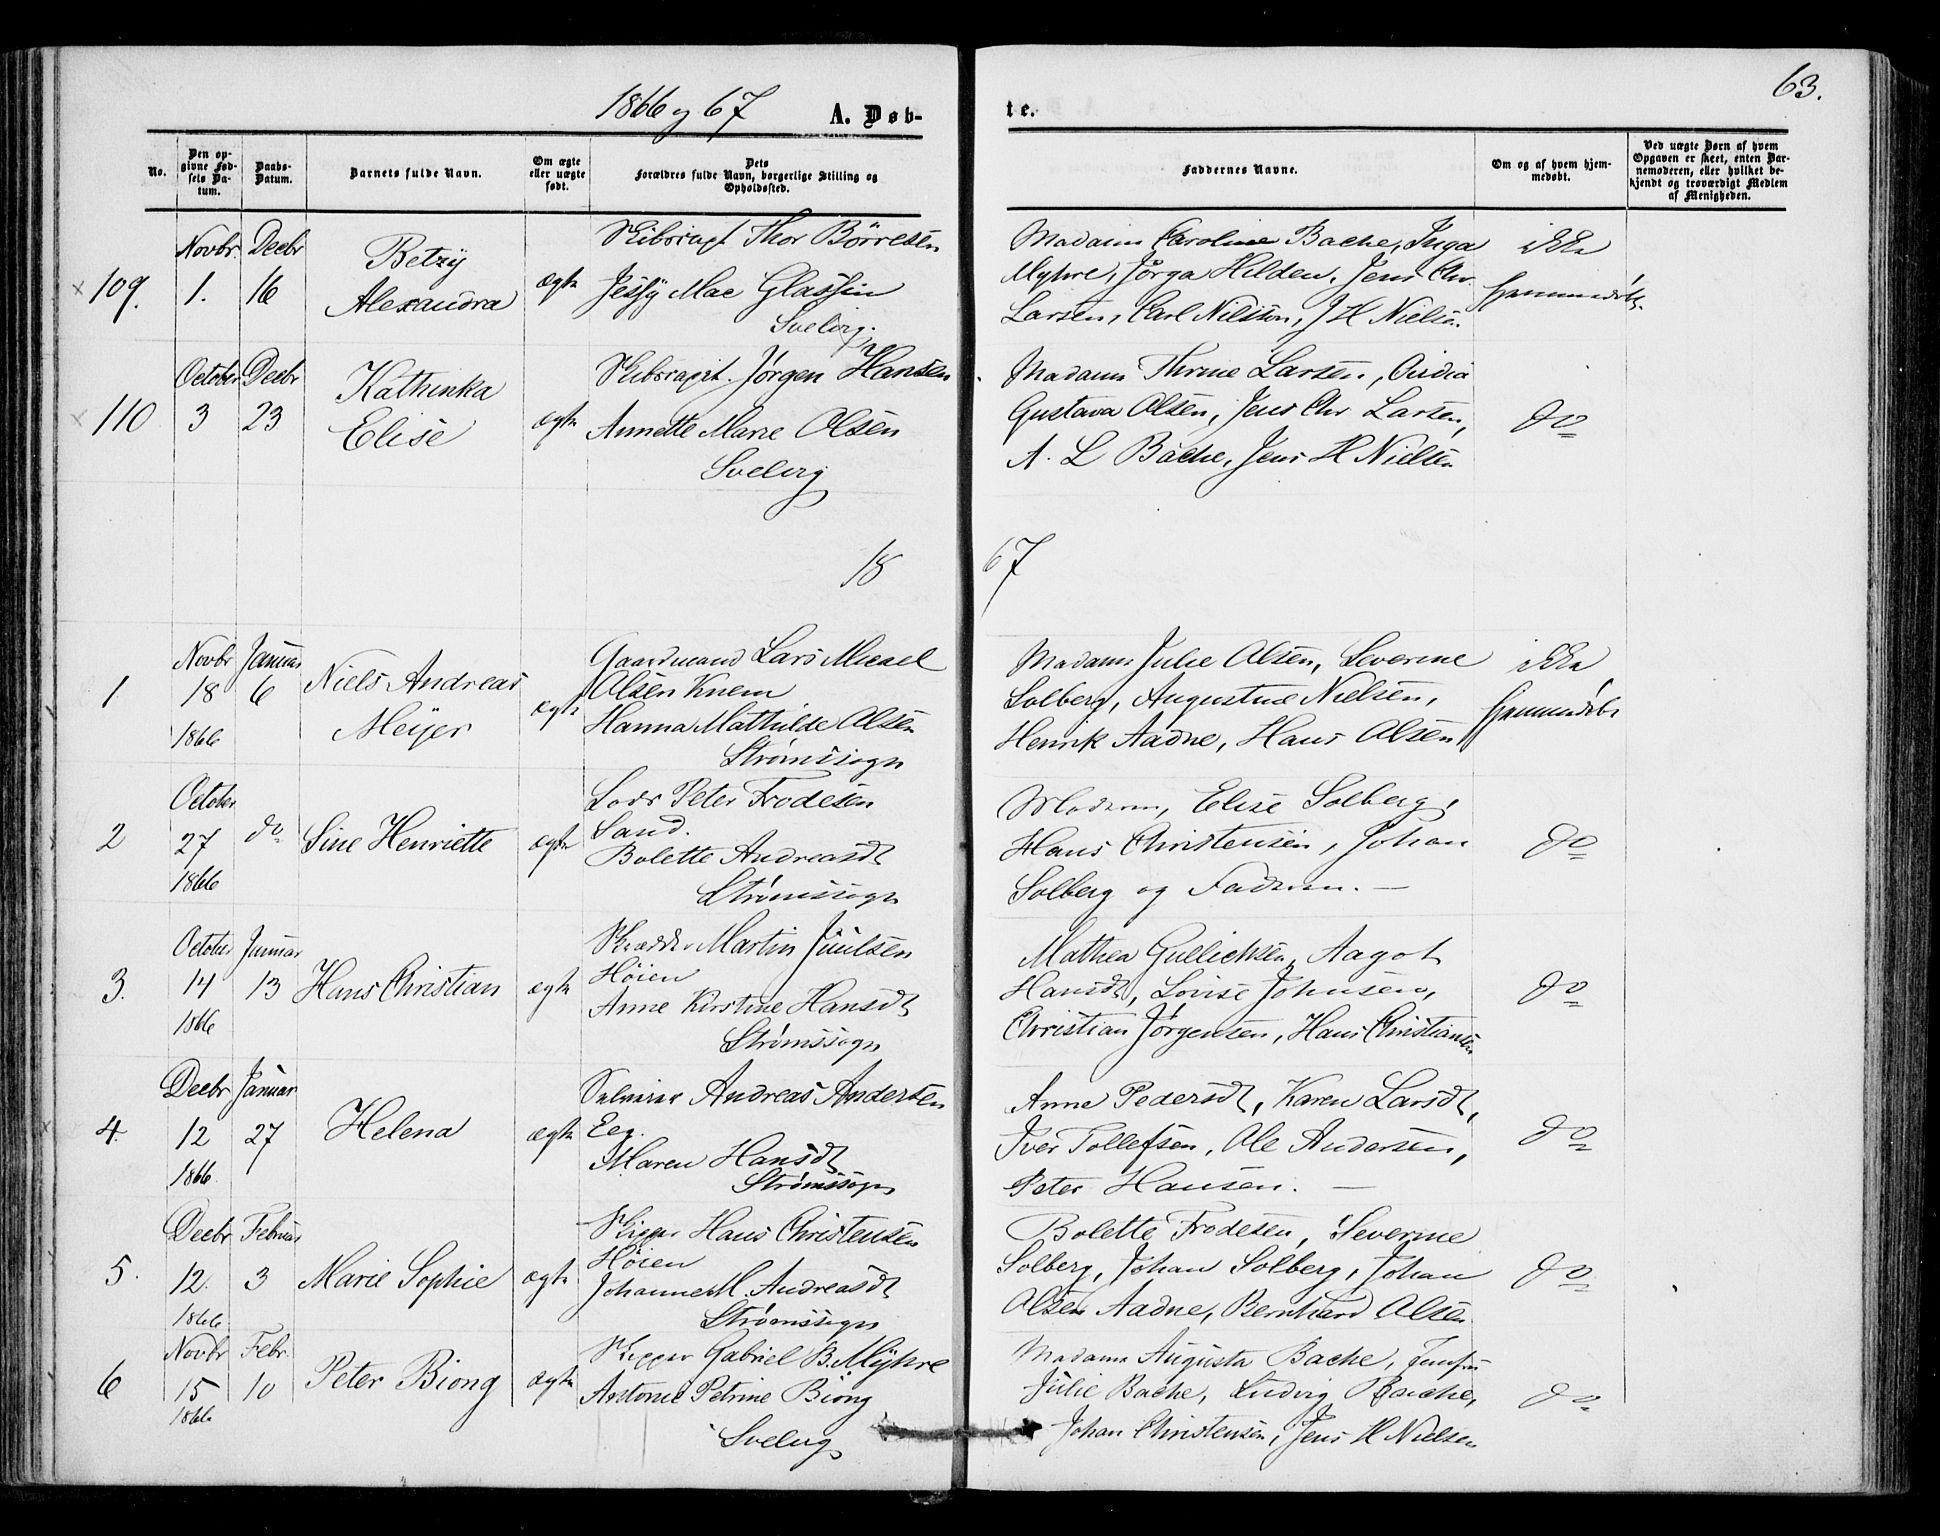 63.
1866 og 67 A. Døb- te.
No.
Den opgivne Fødsels Datum.
Daabs-Datum.
Barnets fulde Navn.
Om ægte eller uægte født.
Dets Forældres fulde Navn, borgerlige Stilling og Opholdssted.
Faddernes Navne.
Om og af hvem hjemmedøbt.
Ved uægte Børn af hvem Opgaven er skeet, enten Barnemoderen, eller hvilket bekjendt og troværdigt Medlem af Menigheden.
109.
Novbr 1.
Decbr 16
Betzy
Alexandra
ægte
Skibscapt Thor Börresen
Jessy Mac Glashin
Svelvig.
Madam Caroline Bache, Inga
Myhre, Jörga Hilden, Jens Chr.
Larsen, Carl Nilsson, J H Nielsen
ikke
hjemmedøbt.
110
October 3
Decbr 23
Kathinka
Elise
ægte
Skibscapit. Jørgen Hansen
Annette Marie Olsen
Svelvig
Madam Thrine Larsen,
Gustava Olsen, Jens Chr Larsen,
A. L Bache, Jens H Nielsen
do
18 67
1
Novbr 18 1866
Januar 6
Niels Andreas
Meijer
ægte
Gaardmand Lars Micael
Olsen Knem
Hanna Mathilde Olsen
Strømssogn
Madam Julie Olsen, Severine
Solberg, Augustine Nielsen,
Henrik Aadne, Hans Olsen
ikke
hjemmedøbt
2
October 27 1866
do
Sine Henriette
ægte
Lods Peter Frodesen
Sand.
Bolette Andreasdt
Strømssogn
Moderen, Elise Solberg,
Hans Christensen, Johan
Solberg og Faderen. —
do
3.
October 14 1866
Januar 13
Hans Christian
ægte
Skrædder Martin Juulsen
Höien
Anne Kirstine Hansdt
Strømssogn
Mathea Gullichsen, Aagot
Hansdt, Lovise Johnsen,
Christian Jørgensen, Hans Christiansen
do
4.
Decbr 12 1866.
Januar 27
Helena
ægte
Andreas Andersen
Eeg.
Maren Hansdt
Strømssogn
Anne Pedersdt, Karen Larsdt,
Iver Tollefsen, Ole Andersen,
Peter Hansen. —
do
5.
Decbr 12. 1866
Februar 3
Marie Sophie
ægte
Skipper Hans Christensen
Höien
Johanne M. Andreasdt
Strømssogn
Bolette Frodesen, Severine
Solberg, Johan Solberg, Johan
Olsen Aadne, Bernhard Olsen
do
6
Novbr 15 1866
Febr. 10
Peter Biong
ægte
Skipper Gabriel B. Myhre
Antonie Petrine Biong
Svelvig
Madam Augusta Bache, Jomfru
Julie Bache, Ludvig Bache,
Johan Christensen, Jens H Nielsen
do